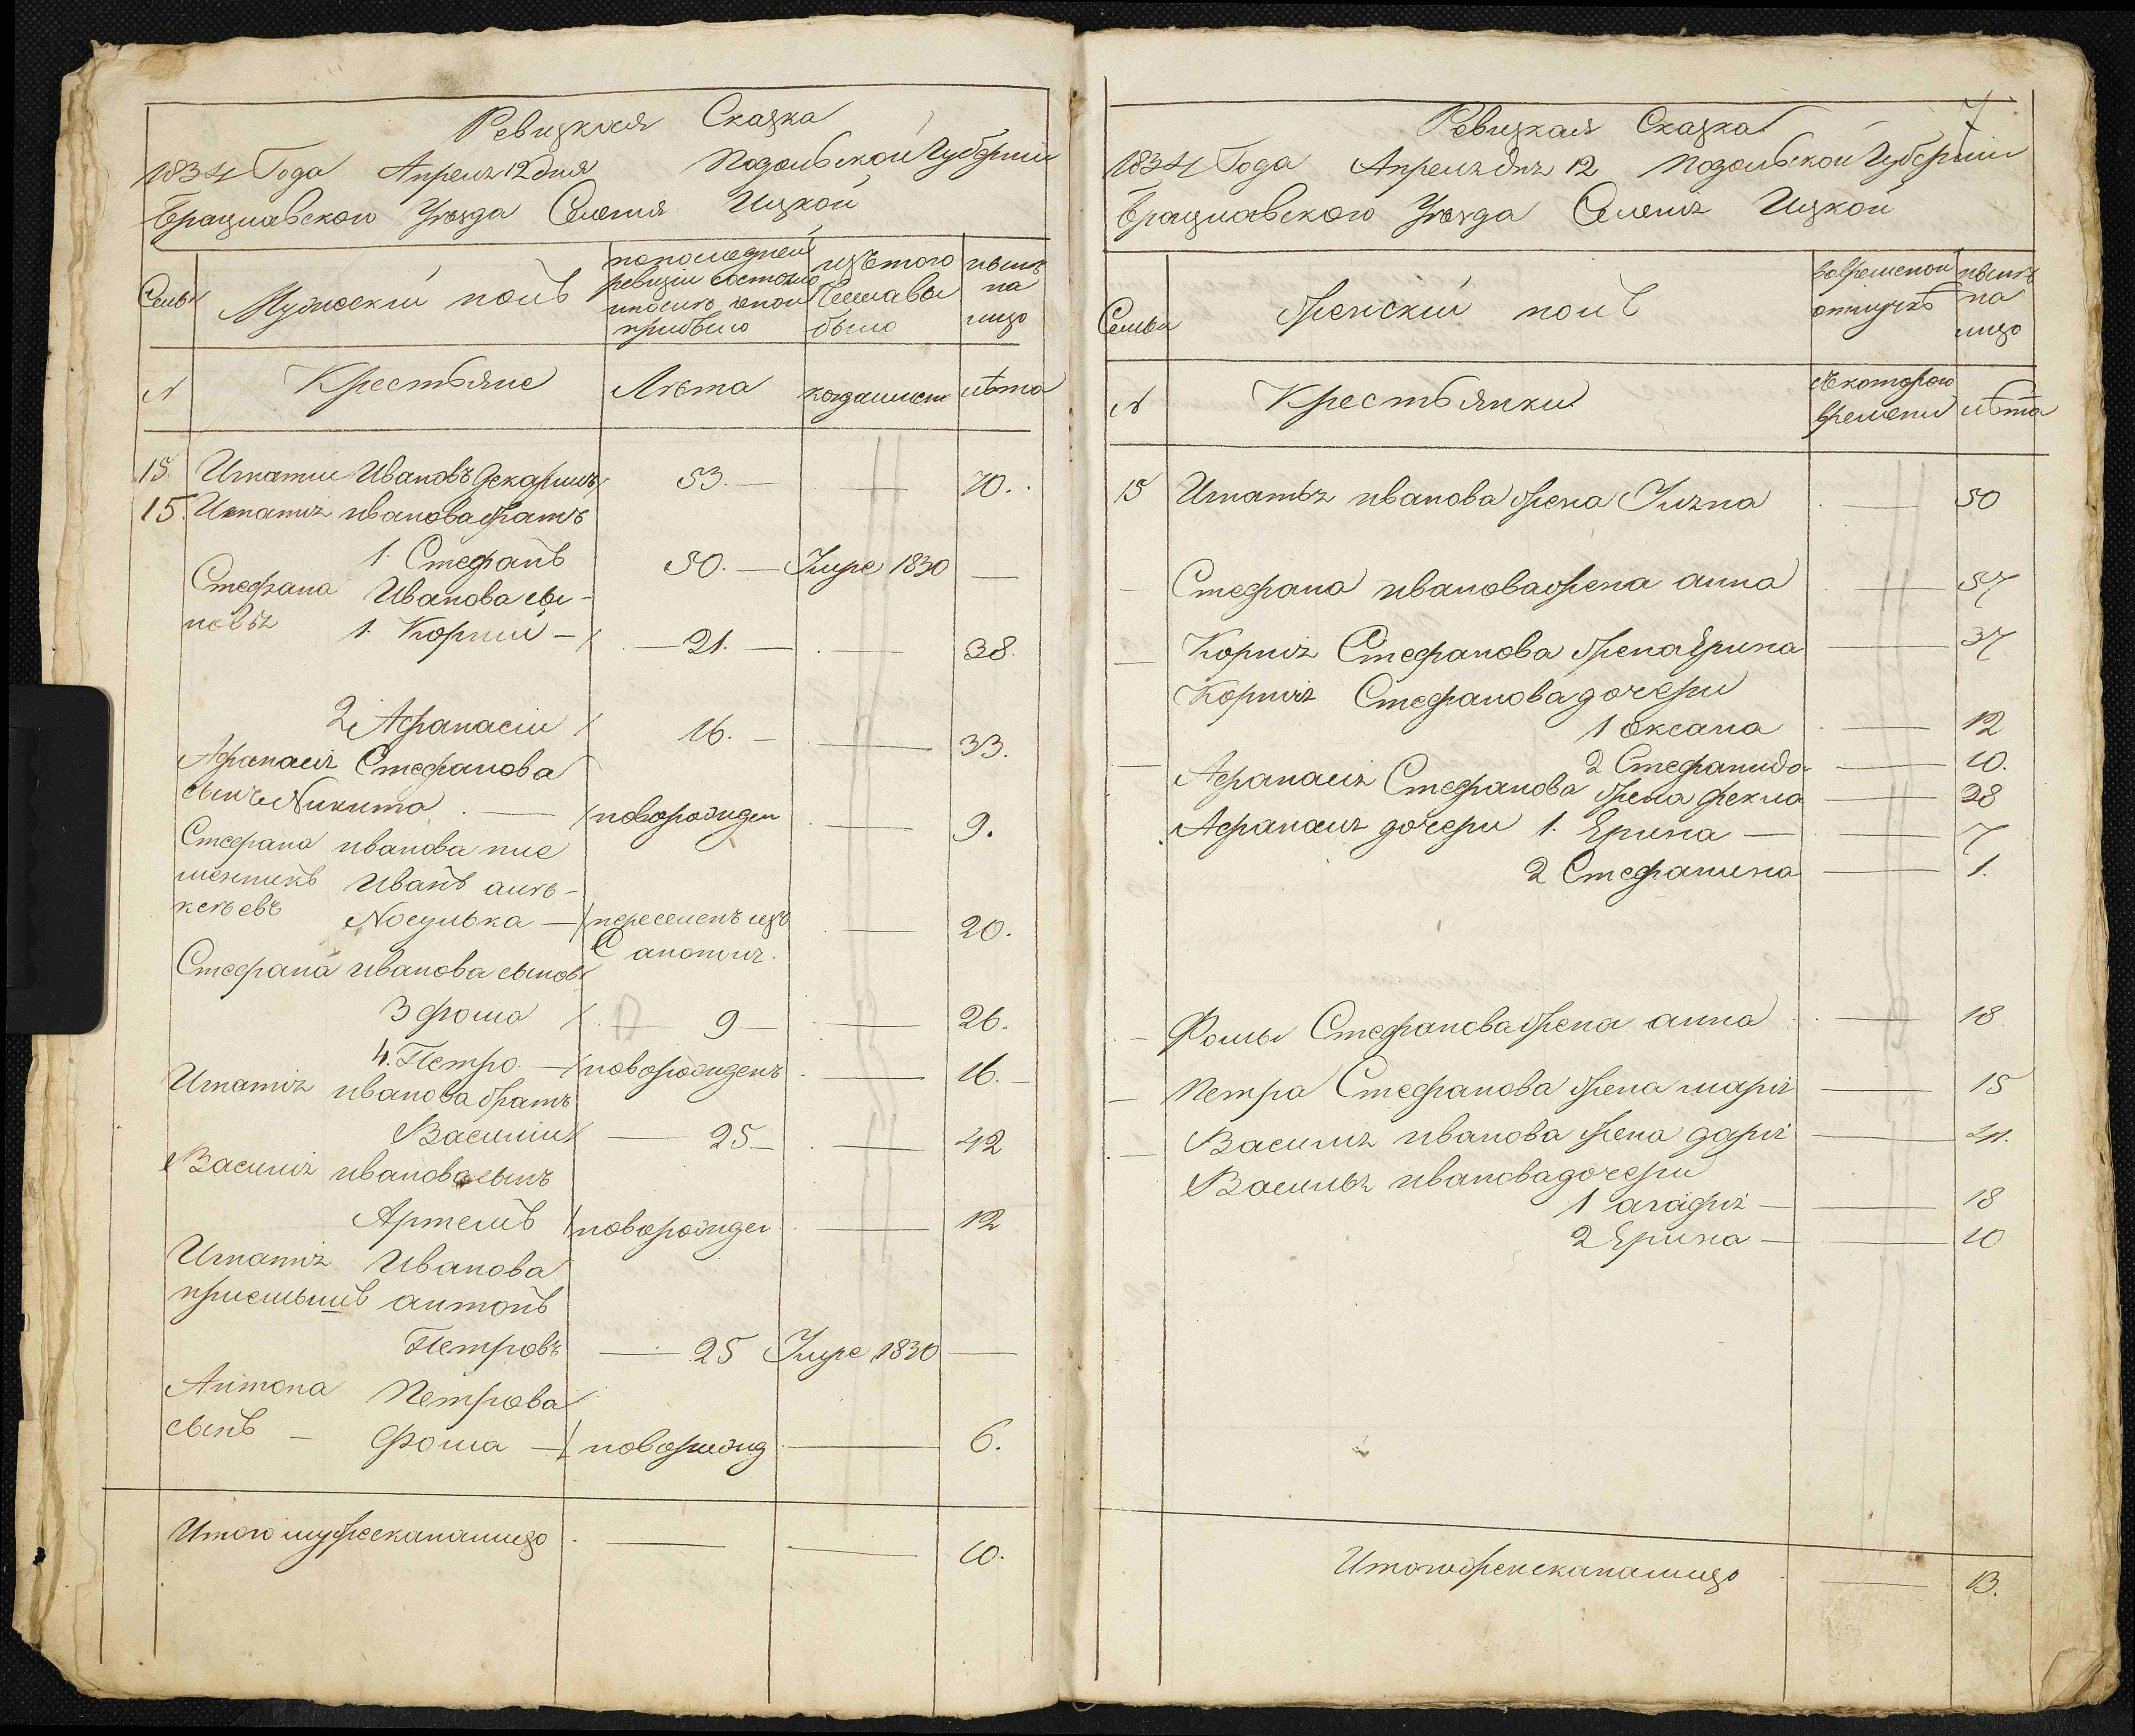 Ревизкая Сказка
1834 Года Апреля 12 дня Подольской Губернии
Брацлавского Уезда Селения Ицкой
Семьи
Мужеский полъ
по последней ревизіи состояло
и после оной прибыло
изъ того числа выбыло
ныне на лицо
№
Крестьяне
Лѣта
когда именно
лѣта
15. Игнатии Ивановъ 53. — — 70.
15. Игнатия иванова братъ
1. Стефанъ 50. — Умре 1830 —
Стефана Иванова сы-
новья 1. Корнии — 21. — — 38.
2 Афанасіи 16. — — 33.
Афанасия Стефанова
сынъ Никита — новорожден — 9.
Стефана иванова пле
мянникъ Иванъ алек-
кѣевъ Носулька — перееменъ изъ — 20.
Стефана иванова сыновя
3 фома 9 — — 26.
4. Петро. — новорожденъ — 16. —
Игнатия иванова братъ
Василии — 25 — — 42
Василия иванова сынъ
Артемъ новорожден — 12
Игнатия Иванова
приемышъ антонъ
Петровъ — 25 Умре 1830 —
Антона Петрова
сынъ — Фома — новорожд — 6.
Итого мужеска на лицо — — 10.
7
Ревизкая Сказка
1834 Года Апреля дня 12 Подольской Губернии
Брацлавского Уезда Селения Ицкой
Семьи
Женскій полъ
во временой отлучкѣ
ныне на лицо
№
Крестьянки
с которого времени
лѣта
15 Игнатья иванова жена — 50
— Стефана иванова жена анна — 57
— Корния Стефанова жена Ерина — 37
Корния Стефанова дочери
1 Оксана — 12
2 Стефанида — 10.
— Афанасия Стефанова жена фекла — 28
Афанасия дочери 1. Ерина — — 7
2 Стефанина — 1.
— Фомы Стефанова жена анна — 18.
— Петра Стефанова жена мария — 15
— Василия иванова жена дария — 41.
Василья иванова дочери
1 агафия — — 18
2 Ерина — — 10
Итого женска на лицо — 13.